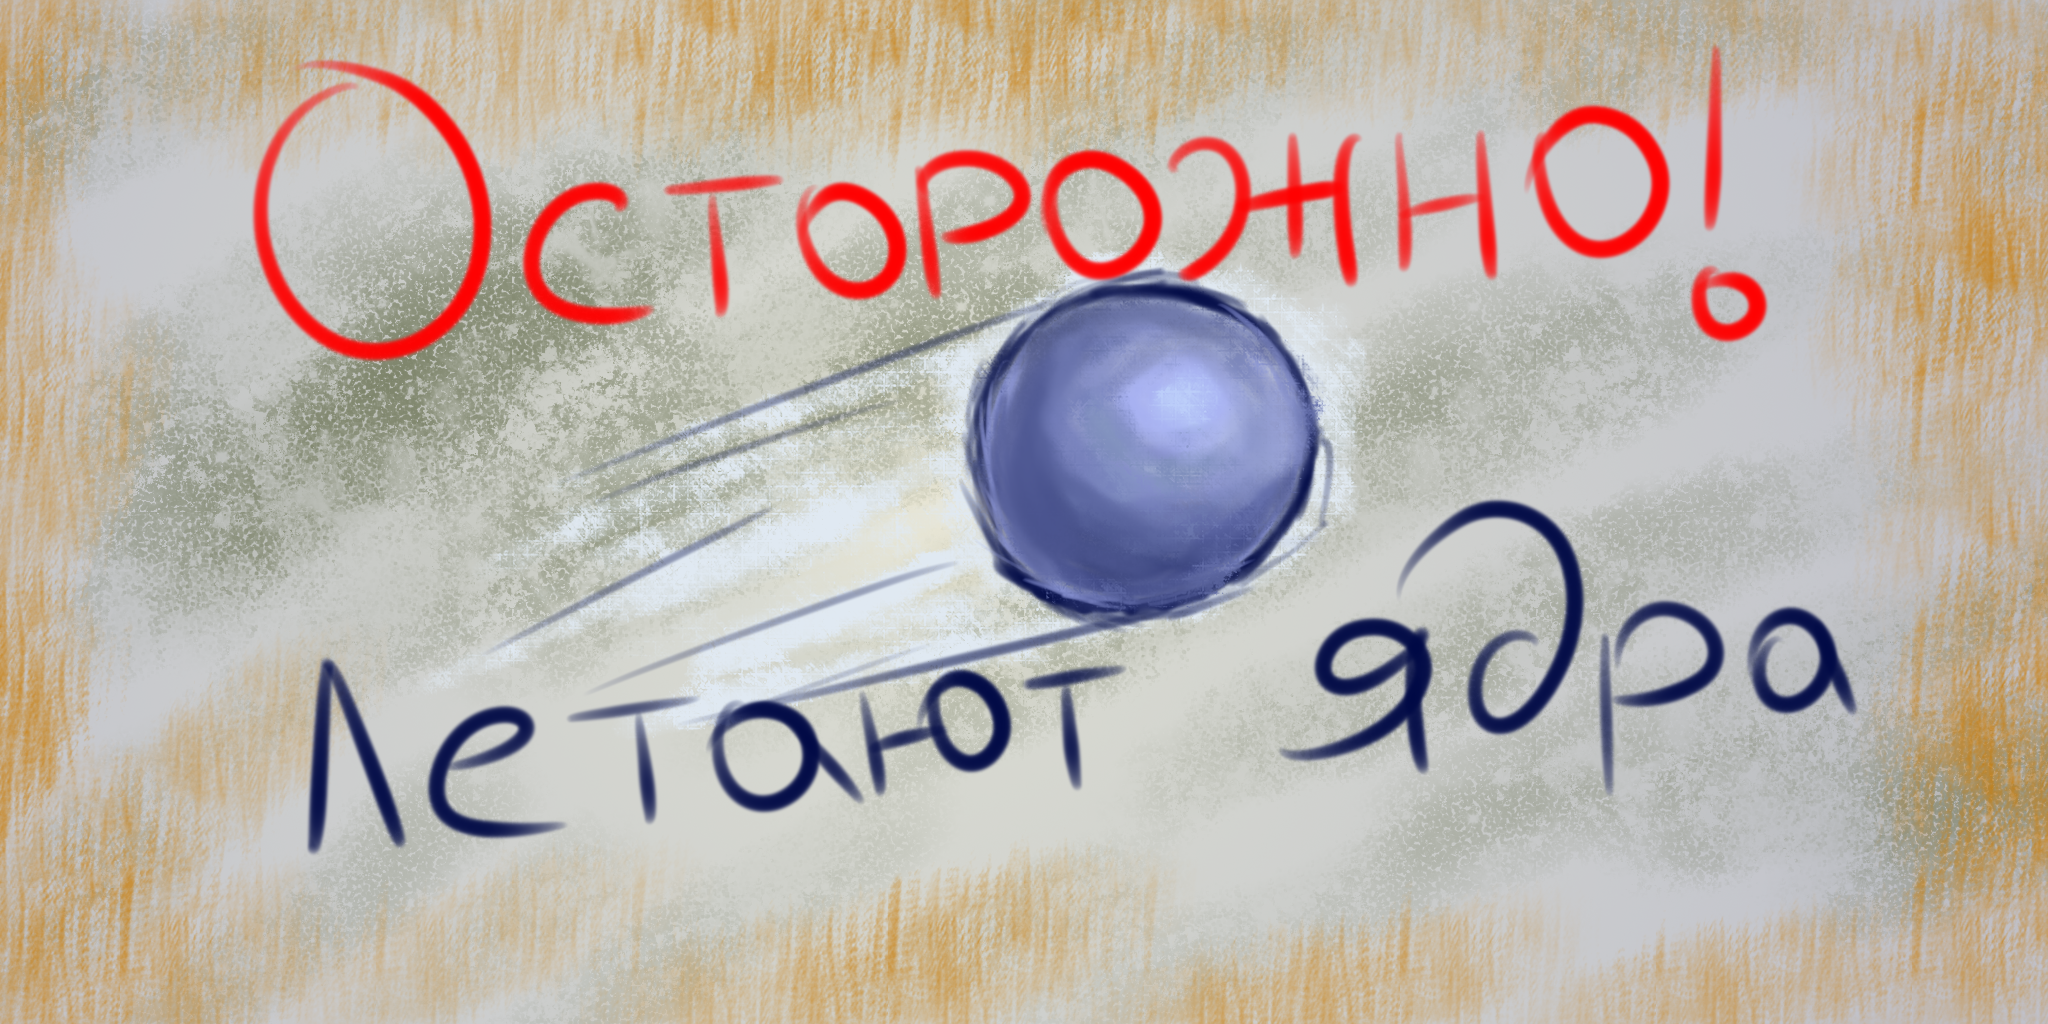 Осторожно!
Летают ядра